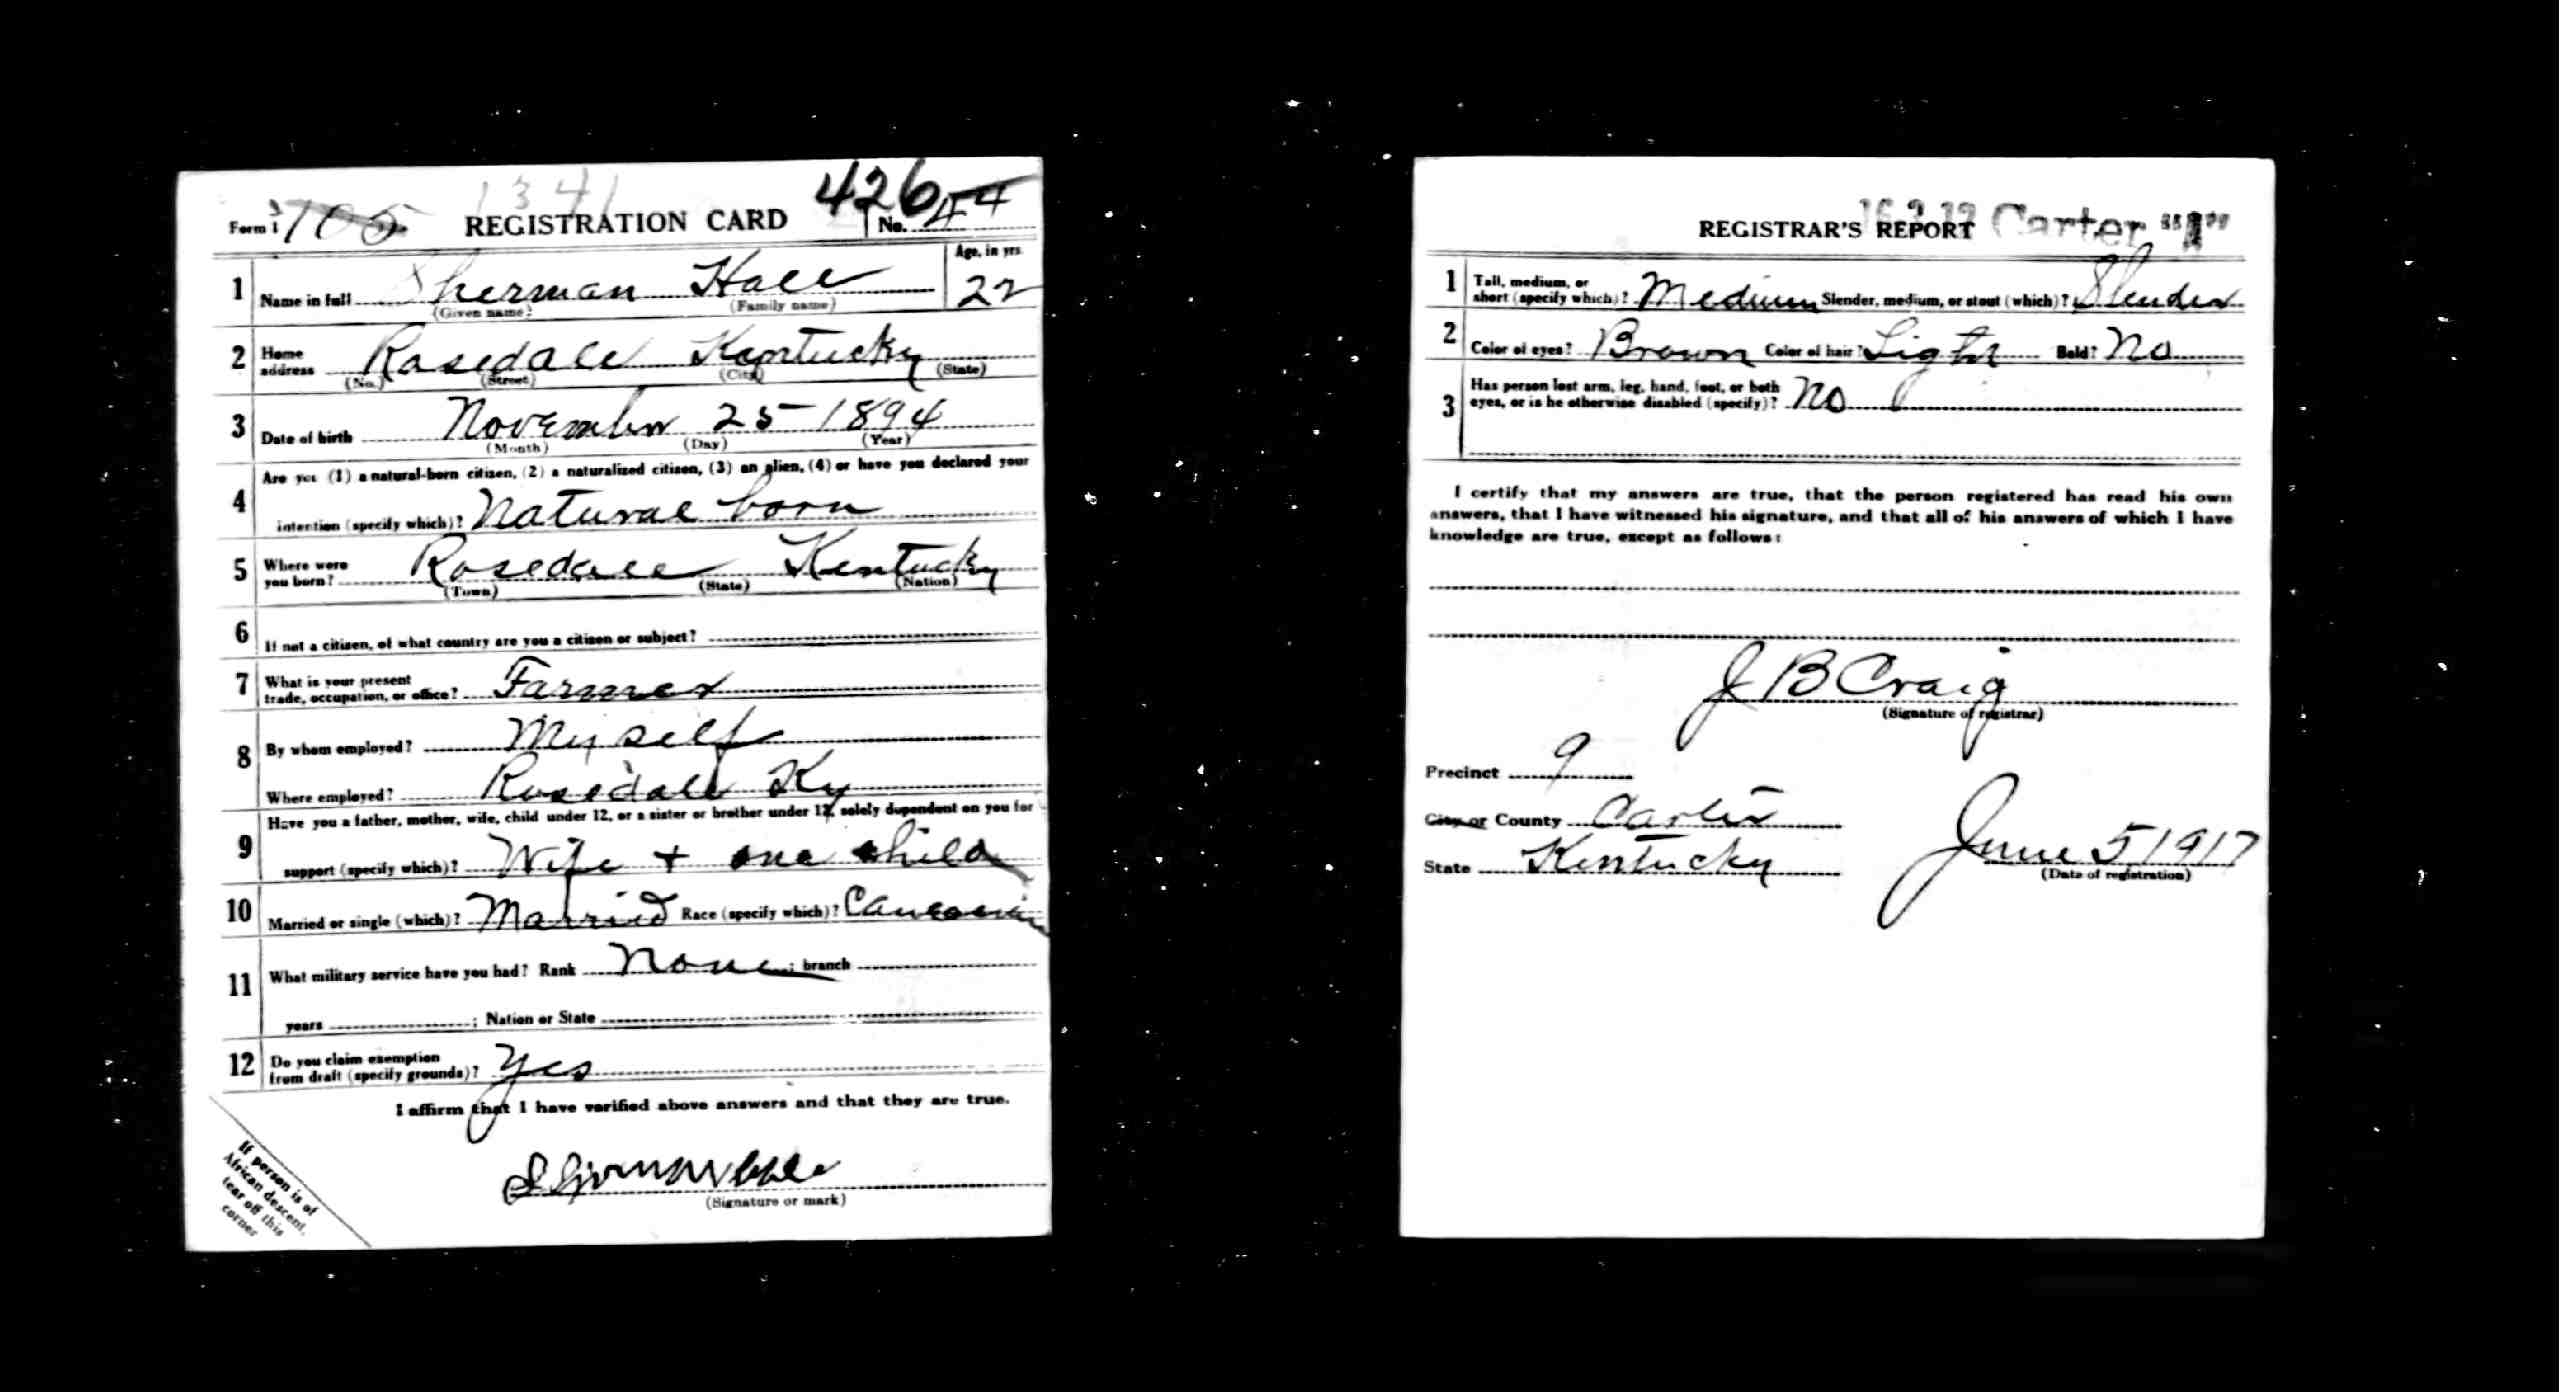 1341
Form 1 105 REGISTRATION CARD 426 No. 44
1 Name in full Sherman Hall Age, in yrs. 22
(Given name) (Family name)
2 Home address Rosedale Kentucky
(No.) (Street) (City) (State)
3 Date of birth November 25 1894
(Month) (Day) (Year)
4 Are you (1) a natural-born citizen, (2) a naturalized citizen, (3) an alien, (4) or have you declared your
intention (specify which)? Natural born
5 Where were you born? Rosedale Kentucky
(Town) (State) (Nation)
6 If not a citizen, of what country are you a citizen or subject?
7 What is your present trade, occupation, or office? Farmer
8 By whom employed? My self
Where employed? Rosedale Ky
9 Have you a father, mother, wife, child under 12, or a sister or brother under 12, solely dependent on you for
support (specify which)? Wife + one child
10 Married or single (which)? Married Race (specify which)? Caucasian
11 What military service have you had? Rank None ; branch
years ; Nation or State
12 Do you claim exemption from draft (specify grounds)? Yes
I affirm that I have verified above answers and that they are true.
(Signature or mark)
If person is of
African descent,
tear off this
corner
REGISTRAR'S REPORT Carter
1 Tall, medium, or short (specify which)? Medium Slender, medium, or stout (which)? Slender
2 Color of eyes? Brown Color of hair? Light Bald? No
3 Has person lost arm, leg, hand, foot, or both
eyes, or is he otherwise disabled (specify)? No
I certify that my answers are true, that the person registered has read his own
answers, that I have witnessed his signature, and that all of his answers of which I have
knowledge are true, except as follows:
J B Craig
(Signature of registrar)
Precinct 9
City or County Carter
State Kentucky June 5 1917
(Date of registration)